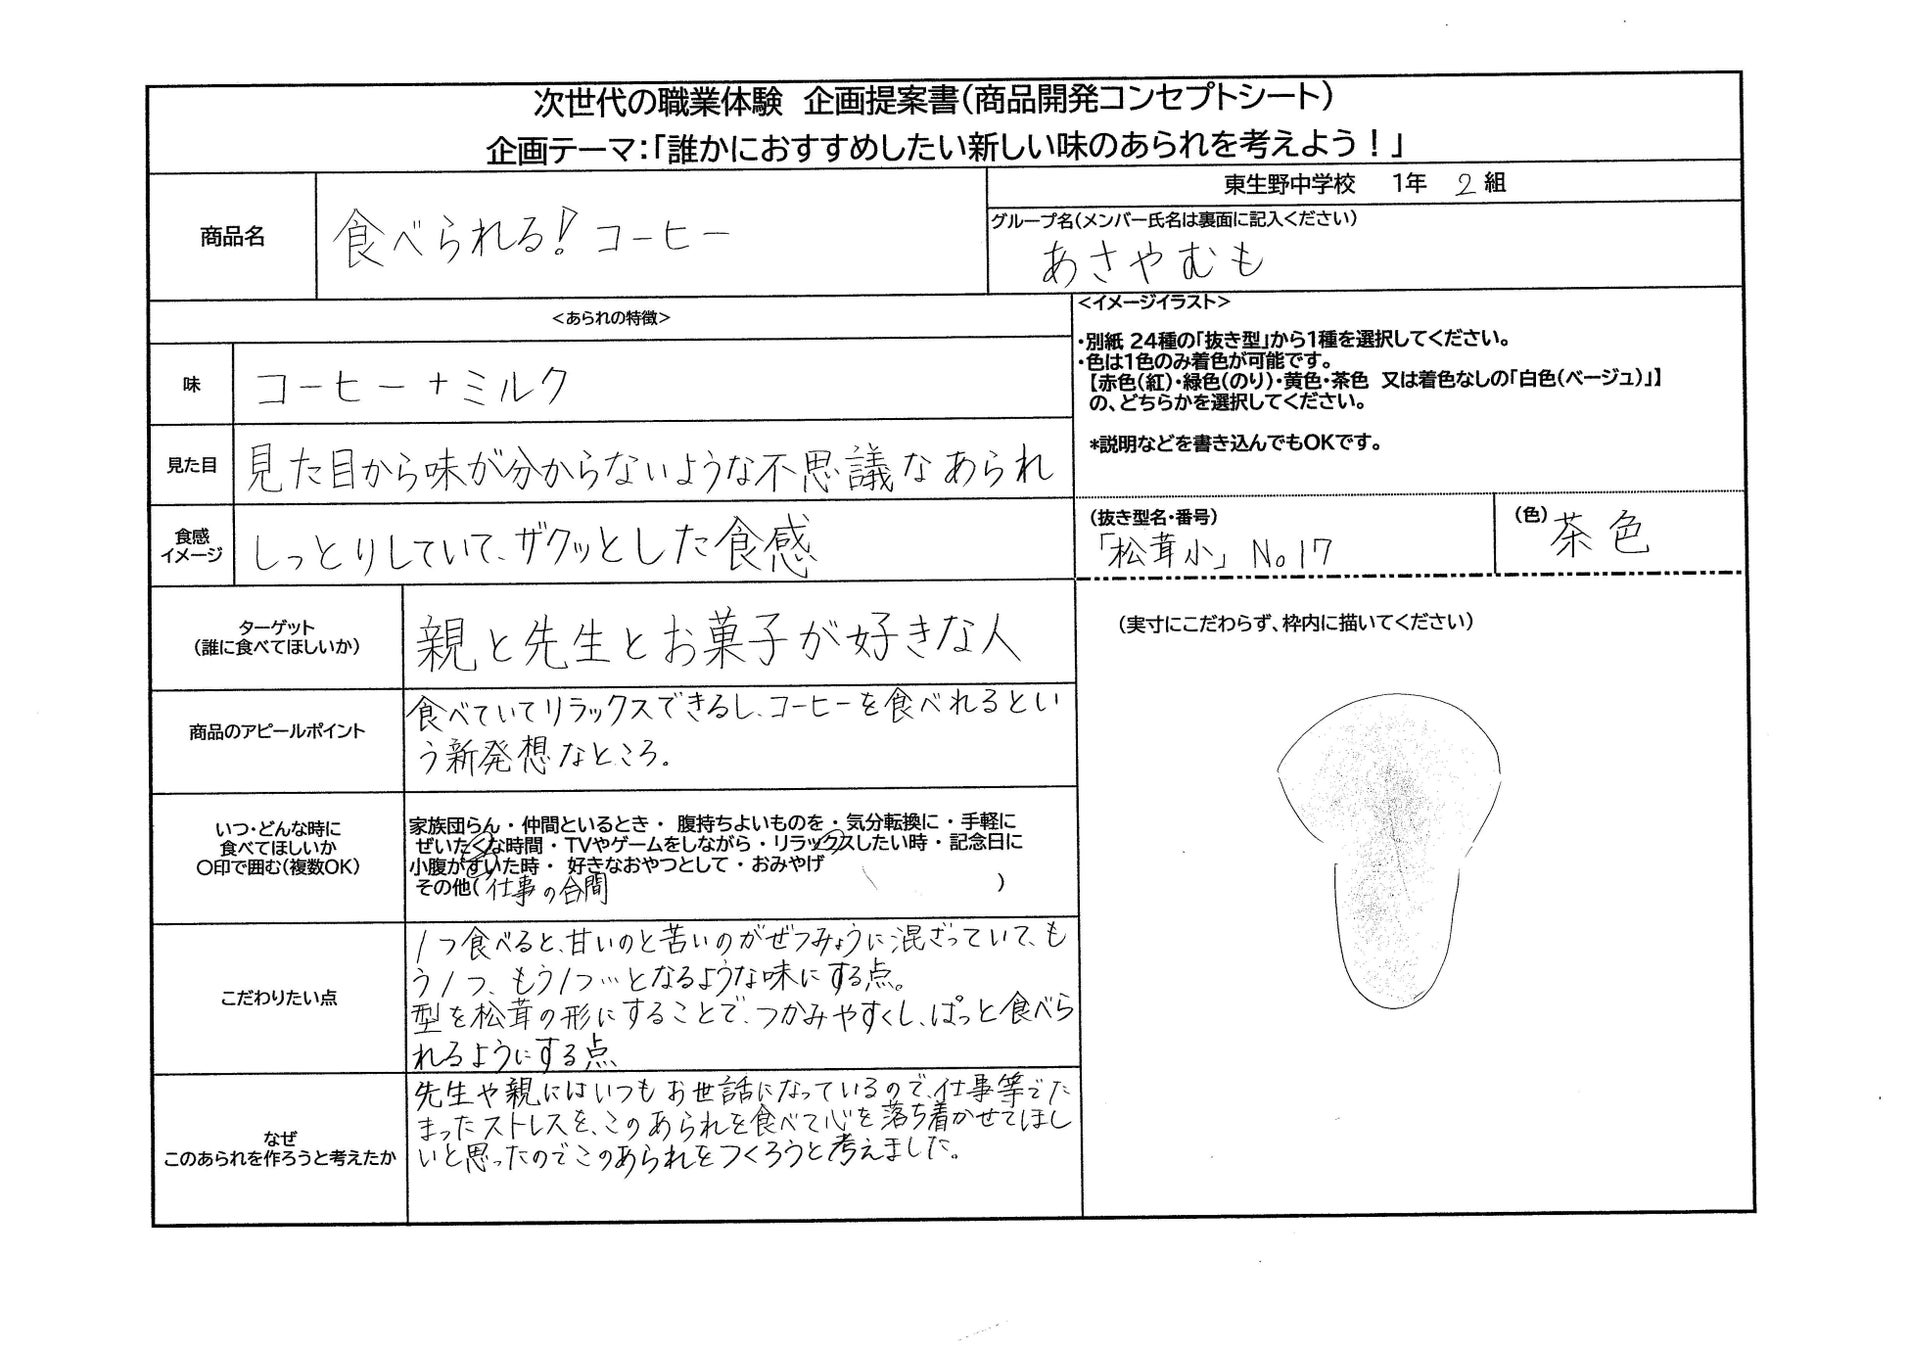 次世代の職業体験 企画提案書(商品開発コンセプトシート)
企画テーマ:「誰かにおすすめしたい新しい味のあられを考えよう!」
東生野中学校 1年 2組
商品名
食べられる!コーヒー
グループ名(メンバー氏名は裏面に記入ください)
あさやむも
<あられの特徴>
味
コーヒー+ミルク
見た目
見た目から味が分からないような不思議なあられ
食感
イメージ
しっとりしていて、ザクッとした食感
<イメージイラスト>
・別紙 24種の「抜き型」から1種を選択してください。
・色は1色のみ着色が可能です。
【赤色(紅)・緑色(のり)・黄色・茶色 又は着色なしの「白色(ベージュ)」】
の、どちらかを選択してください。
*説明などを書き込んでもOKです。
(抜き型名・番号)
「松茸小」 No17
(色)
茶色
(実寸にこだわらず、枠内に描いてください)
ターゲット
(誰に食べてほしいか)
親と先生とお菓子が好きな人
商品のアピールポイント
食べていてリラックスできるし、コーヒーを食べれるとい
う新発想なところ。
いつ・どんな時に
食べてほしいか
〇印で囲む(複数OK)
家族団らん・仲間といるとき・ 腹持ちよいものを・気分転換に・手軽に
ぜいたくな時間・TVやゲームをしながら・リラックスしたい時・記念日に
小腹がすいた時・ 好きなおやつとして・おみやげ
その他(仕事の合間 )
こだわりたい点
1つ食べると、甘いのと苦いのがぜつみょうに混ざっていて、も
う1つ、もう1つ…となるような味にする点。
型を松茸の形にすることで、つかみやすくし、ぱっと食べら
れるようにする点、
なぜ
このあられを作ろうと考えたか
先生や親にはいつもお世話になっているので、仕事等でた
まったストレスを、このあられを食べて心を落ち着かせてほし
いと思ったのでこのあられをつくろうと考えました。